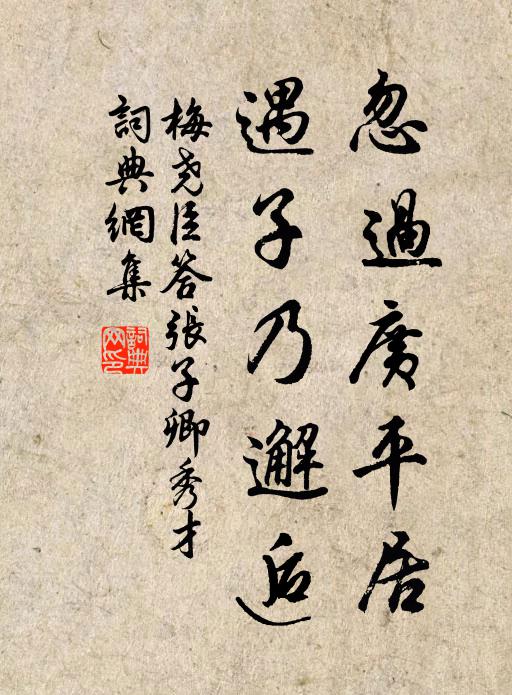 忽過廣平居
遇子乃邂逅
梅堯臣答張子卿秀才
詞典網集
詞典网印